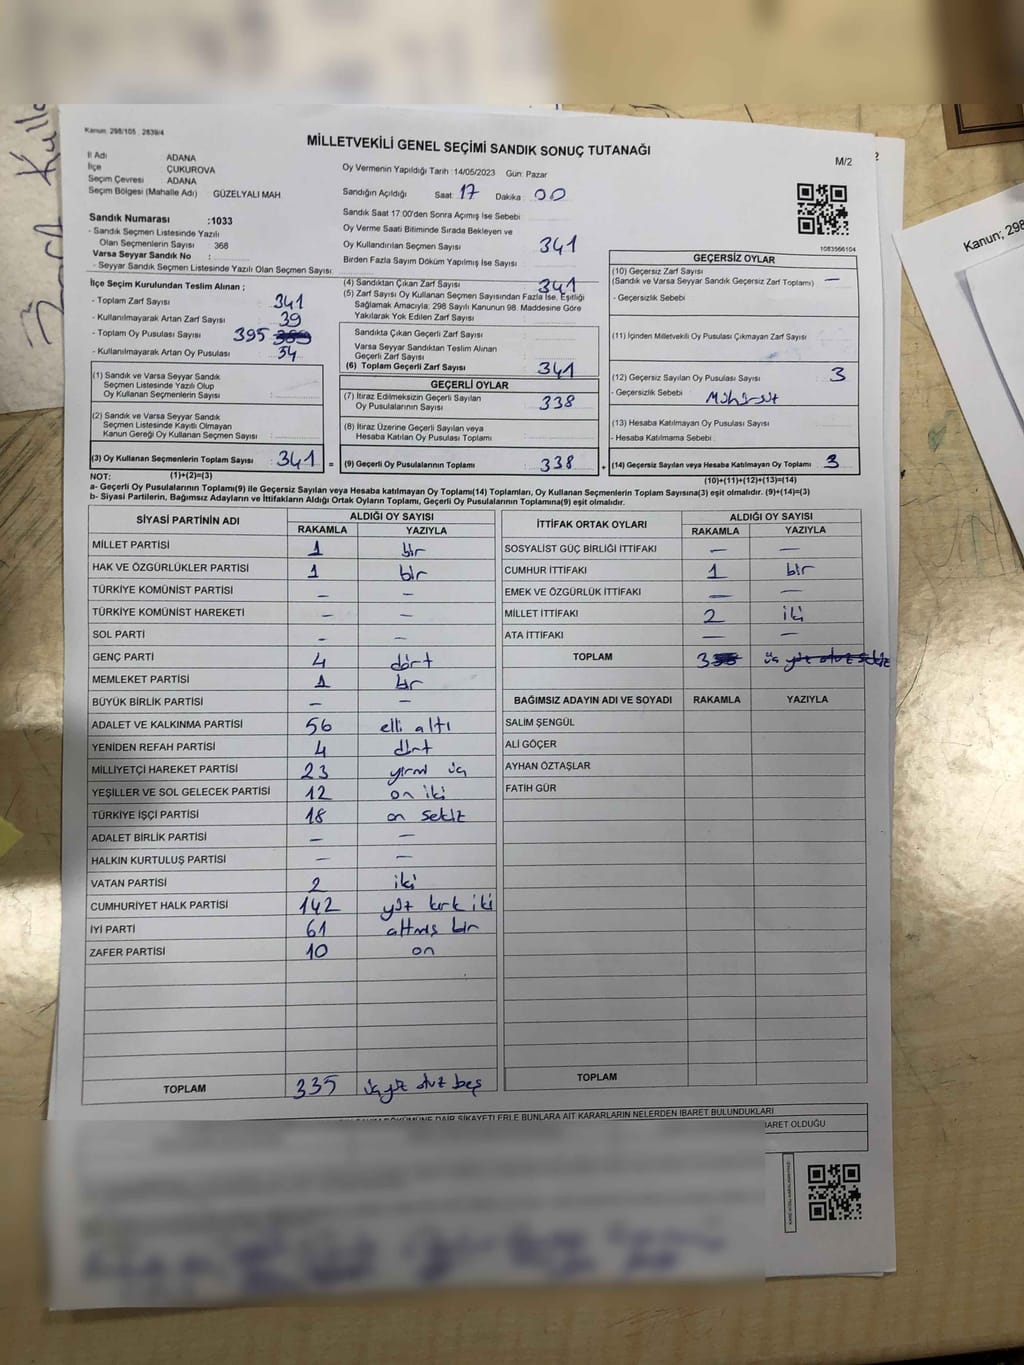 Kanun; 298/105, 2839/4
MİLLETVEKİLİ GENEL SEÇİMİ SANDIK SONUÇ TUTANAĞI
M/2
2
İl Adı ADANA
İlçe ÇUKUROVA
Seçim Çevresi ADANA
Seçim Bölgesi (Mahalle Adı) GÜZELYALI MAH
Sandık Numarası :1033
- Sandık Seçmen Listesinde Yazılı
Olan Seçmenlerin Sayısı 368
Varsa Seyyar Sandık No :
- Seyyar Sandık Seçmen Listesinde Yazılı Olan Seçmen Sayısı:
Oy Vermenin Yapıldığı Tarih :14/05/2023 Gün: Pazar
Sandığın Açıldığı Saat: 17 Dakika: 00
Sandık Saat 17:00'den Sonra Açımış İse Sebebi
Oy Verme Saati Bitiminde Sırada Bekleyen ve
Oy Kullandırılan Seçmen Sayısı 341
Birden Fazla Sayım Döküm Yapılmış İse Sayısı
1083566104
Kanun; 298
İlçe Seçim Kurulundan Teslim Alınan ;
- Toplam Zarf Sayısı 341
- Kullanılmayarak Artan Zarf Sayısı 39
- Toplam Oy Pusulası Sayısı 395
- Kullanılmayarak Artan Oy Pusulası 54
(1) Sandık ve Varsa Seyyar Sandık
Seçmen Listesinde Yazılı Olup
Oy Kullanan Seçmenlerin Sayısı :
(2) Sandık ve Varsa Seyyar Sandık
Seçmen Listesinde Kayıtlı Olmayan
Kanun Gereği Oy Kullanan Seçmen Sayısı :
(3) Oy Kullanan Seçmenlerin Toplam Sayısı : 341
(1)+(2)=(3)
(4) Sandıktan Çıkan Zarf Sayısı 341
(5) Zarf Sayısı Oy Kullanan Seçmen Sayısından Fazla İse, Eşitliği
Sağlamak Amacıyla; 298 Sayılı Kanunun 98. Maddesine Göre
Yakılarak Yok Edilen Zarf Sayısı
Sandıkta Çıkan Geçerli Zarf Sayısı
Varsa Seyyar Sandıktan Teslim Alınan
Geçerli Zarf Sayısı
(6) Toplam Geçerli Zarf Sayısı 341
GEÇERLİ OYLAR
(7) İtiraz Edilmeksizin Geçerli Sayılan
Oy Pusulalarının Sayısı 338
(8) İtiraz Üzerine Geçerli Sayılan veya
Hesaba Katılan Oy Pusulası Toplamı
= (9) Geçerli Oy Pusulalarının Toplamı 338
GEÇERSİZ OYLAR
(10) Geçersiz Zarf Sayısı
(Sandık ve Varsa Seyyar Sandık Geçersiz Zarf Toplamı) —
- Geçersizlik Sebebi
(11) İçinden Milletvekili Oy Pusulası Çıkmayan Zarf Sayısı
(12) Geçersiz Sayılan Oy Pusulası Sayısı 3
- Geçersizlik Sebebi
(13) Hesaba Katılmayan Oy Pusulası Sayısı
- Hesaba Katılmama Sebebi
+ (14) Geçersiz Sayılan veya Hesaba Katılmayan Oy Toplamı 3
(10)+(11)+(12)+(13)=(14)
NOT:
a- Geçerli Oy Pusulalarının Toplamı(9) ile Geçersiz Sayılan veya Hesaba katılmayan Oy Toplamı(14) Toplamları, Oy Kullanan Seçmenlerin Toplam Sayısına(3) eşit olmalıdır. (9)+(14)=(3)
b- Siyasi Partilerin, Bağımsız Adayların ve İttifakların Aldığı Ortak Oyların Toplamı, Geçerli Oy Pusulalarının Toplamına(9) eşit olmalıdır.
SİYASİ PARTİNİN ADI ALDIĞI OY SAYISI
RAKAMLA YAZIYLA
MİLLET PARTİSİ 1 bir
HAK VE ÖZGÜRLÜKLER PARTİSİ 1 bir
TÜRKİYE KOMÜNİST PARTİSİ — —
TÜRKİYE KOMÜNİST HAREKETİ — —
SOL PARTİ — —
GENÇ PARTİ 4 dört
MEMLEKET PARTİSİ 1 bir
BÜYÜK BİRLİK PARTİSİ — —
ADALET VE KALKINMA PARTİSİ 56 elli altı
YENİDEN REFAH PARTİSİ 4 dört
MİLLİYETÇİ HAREKET PARTİSİ 23 yirmi üç
YEŞİLLER VE SOL GELECEK PARTİSİ 12 on iki
TÜRKİYE İŞÇİ PARTİSİ 18 on sekiz
ADALET BİRLİK PARTİSİ — —
HALKIN KURTULUŞ PARTİSİ — —
VATAN PARTİSİ 2 iki
CUMHURİYET HALK PARTİSİ 142 yüz kırk iki
İYİ PARTİ 61 altmış bir
ZAFER PARTİSİ 10 on
TOPLAM 335 üçyüz otuz beş
İTTİFAK ORTAK OYLARI ALDIĞI OY SAYISI
RAKAMLA YAZIYLA
SOSYALİST GÜÇ BİRLİĞİ İTTİFAKI — —
CUMHUR İTTİFAKI 1 bir
EMEK VE ÖZGÜRLÜK İTTİFAKI — —
MİLLET İTTİFAKI 2 iki
ATA İTTİFAKI — —
TOPLAM 3 üç
BAĞIMSIZ ADAYIN ADI VE SOYADI RAKAMLA YAZIYLA
SALİM ŞENGÜL
ALİ GÖÇER
AYHAN ÖZTAŞLAR
FATİH GÜR
TOPLAM
DÖKÜMÜNE DAİR ŞİKAYETLERLE BUNLARA AİT KARARLARIN NELERDEN İBARET BULUNDUKLARI
İBARET OLDUĞU